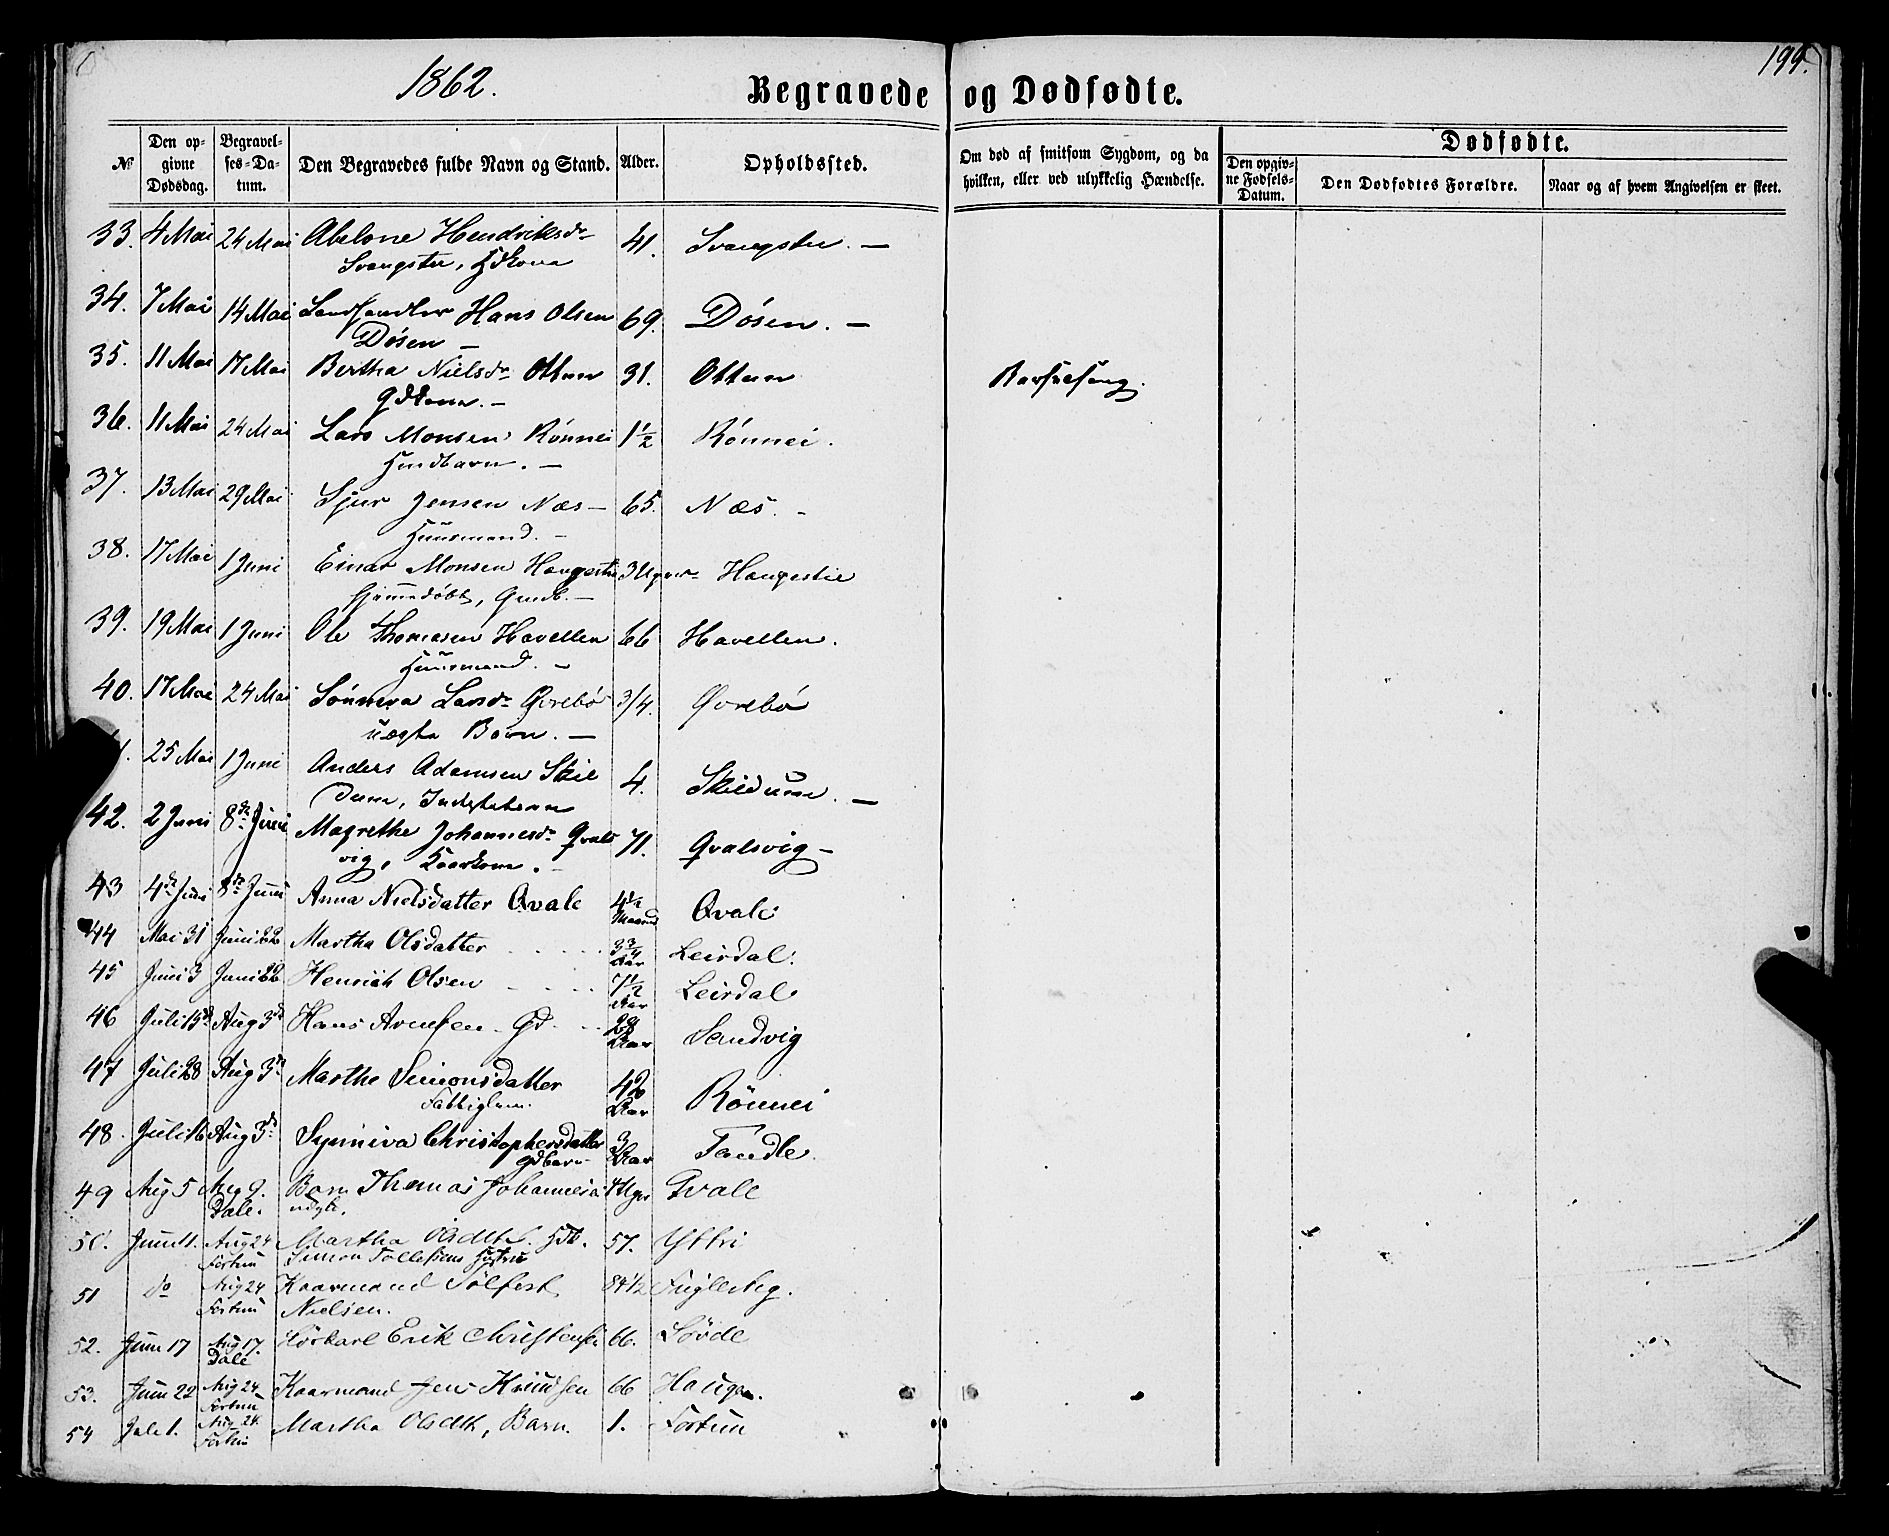 1862.
Begravede og Dødfødte.
199.
№
Den op-
givne
Dødsdag.
Begravel-
ses-Da-
tum.
Den Begravedes fulde Navn og Stand.
Alder.
Opholdssted.
Om død af smitsom Sygdom, og da
hvilken, eller ved ulykkelig Hændelse.
Dødfødte.
Den opgiv-
ne Fødsels-
Datum.
Den Dødfødtes Forældre.
Naar og af hvem Angivelsen er skeet.
33. 4 Mai 24 Mai Abelone Hendriksdr 41. Svangstu. —
Svangstu, Hdkona
34. 7 Mai 14 Mai Landhandler Hans Olsen 69. Døsen. —
Døsen —
35. 11 Mai 17 Mai Bertha Nielsdr Ottum 31. Ottum Barselseng.
Gdkona. —
36. 11 Mai 24 Mai Lars Monsen Rónnei 1½ Rónnei.
Husdbarn. —
37. 13 Mai 29 Mai Sjur Jensen Næs — 65. Næs. -
Huusmand. —
38. 17 Mai 1 Juni Einar Monsen Haugestie 3 Uger Haugestie
hjemedøbt, Gmdb. —
39. 19 Mai 1 Juni Ole Thomasen Havellen 66 Havellen.
Huusmand. —
40. 17 Mai 24 Mai Sónneva Larsdr Øvrebó 3/4. Øvrebó
uægte Barn. —
25 Mai 1 Juni Anders Adamsen Skil 4. Skildum. —
dum, Inderstebarn
42. 2 Juni 8de Juni Magrethe Johannesdr Qvals 71. Qvalsvig —
vig, Kaarkone. —
43 4de Juni 8de Juni Anna Nielsdatter Qvale 4½ Maaned Qvale
44 Mai 31 Juni 22 Martha Olsdatter 3¾ Aar Leirdal.
45 Juni 3 Juni 22 Henrich Olsen 7½ Aar Leirdal
46 Juli 13de Aug 3de Hans Gd. 28 Aar Sandvig
47 Juli 28 Aug 3de Marthe Simonsdatter 42 Aar Rönnei
Fattiglem.
48. Juli 16 Aug 3de Synniva Christophersdatter 3 Aar Fandle.
Gdbarn
49 Aug 5 Aug 9. Barn Thomas Johannesen 4 Uger Qvale
Dale. uægte.
50. Juni 11. Aug 24 Martha Olsdtr. Hdk. 57. Yttri
Fortun Simon Tollefsens Hustru
51 do Aug 24 Kaarmand Tolfest 84 1/2 Fugleteg.
Fortun Nielsen.
52. Juni 17 Aug 17. Erik Christensen 66. Søvde
Dale
53. Juni 22 Aug 24 Kaarmand Jens Knudsen 66 Haugen.
Fortun
54 Juli 1. Aug 24. Martha Olsdtr, Barn. 1. Fortun
Fortun